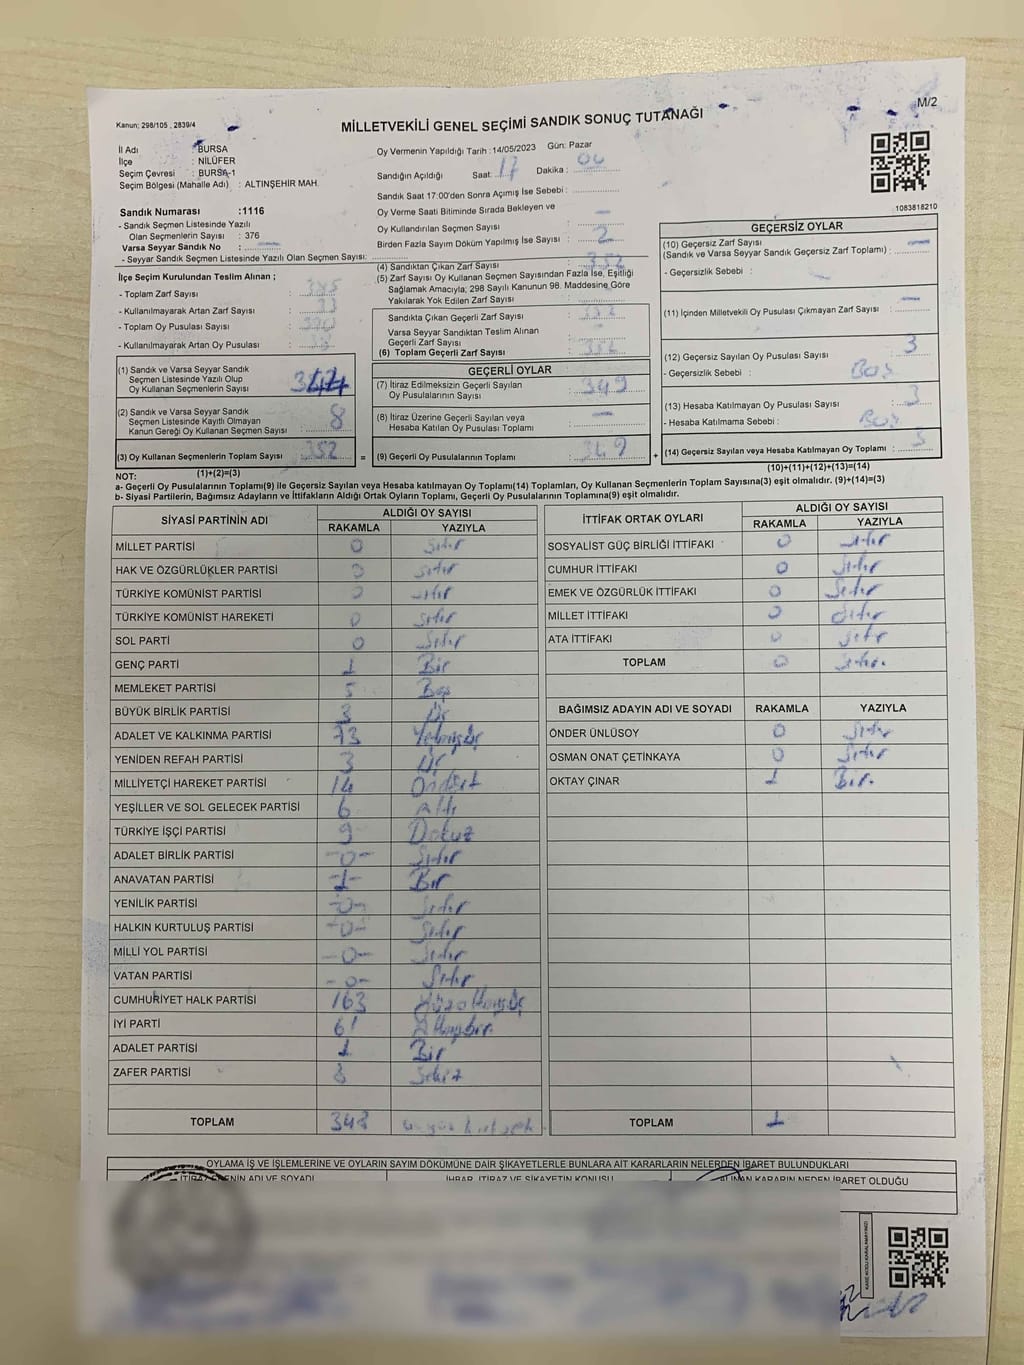 M/2
Kanun; 298/105 , 2839/4
MİLLETVEKİLİ GENEL SEÇİMİ SANDIK SONUÇ TUTANAĞI
İl Adı : BURSA
İlçe : NİLÜFER
Seçim Çevresi : BURSA-1
Seçim Bölgesi (Mahalle Adı) : ALTINŞEHİR MAH.
Sandık Numarası :1116
- Sandık Seçmen Listesinde Yazılı
Olan Seçmenlerin Sayısı : 376
Varsa Seyyar Sandık No : —
- Seyyar Sandık Seçmen Listesinde Yazılı Olan Seçmen Sayısı:
İlçe Seçim Kurulundan Teslim Alınan ;
- Toplam Zarf Sayısı :
- Kullanılmayarak Artan Zarf Sayısı :
- Toplam Oy Pusulası Sayısı :
- Kullanılmayarak Artan Oy Pusulası :
(1) Sandık ve Varsa Seyyar Sandık
Seçmen Listesinde Yazılı Olup
Oy Kullanan Seçmenlerin Sayısı
(2) Sandık ve Varsa Seyyar Sandık
Seçmen Listesinde Kayıtlı Olmayan
Kanun Gereği Oy Kullanan Seçmen Sayısı 8
(3) Oy Kullanan Seçmenlerin Toplam Sayısı : 352
Oy Vermenin Yapıldığı Tarih :14/05/2023 Gün: Pazar
Sandığın Açıldığı Saat: 17 Dakika : 00
Sandık Saat 17:00'den Sonra Açımış İse Sebebi :
Oy Verme Saati Bitiminde Sırada Bekleyen ve
Oy Kullandırılan Seçmen Sayısı : —
Birden Fazla Sayım Döküm Yapılmış İse Sayısı : 2
(4) Sandıktan Çıkan Zarf Sayısı : 352
(5) Zarf Sayısı Oy Kullanan Seçmen Sayısından Fazla İse, Eşitliği
Sağlamak Amacıyla; 298 Sayılı Kanunun 98. Maddesine Göre
Yakılarak Yok Edilen Zarf Sayısı :
Sandıkta Çıkan Geçerli Zarf Sayısı : 352
Varsa Seyyar Sandıktan Teslim Alınan
Geçerli Zarf Sayısı :
(6) Toplam Geçerli Zarf Sayısı : 352
GEÇERLİ OYLAR
(7) İtiraz Edilmeksizin Geçerli Sayılan
Oy Pusulalarının Sayısı : 349
(8) İtiraz Üzerine Geçerli Sayılan veya
Hesaba Katılan Oy Pusulası Toplamı : —
= (9) Geçerli Oy Pusulalarının Toplamı : 349 +
1083818210
GEÇERSİZ OYLAR
(10) Geçersiz Zarf Sayısı
(Sandık ve Varsa Seyyar Sandık Geçersiz Zarf Toplamı) : —
- Geçersizlik Sebebi :
(11) İçinden Milletvekili Oy Pusulası Çıkmayan Zarf Sayısı : —
(12) Geçersiz Sayılan Oy Pusulası Sayısı : 3
- Geçersizlik Sebebi : Boş
(13) Hesaba Katılmayan Oy Pusulası Sayısı : 3
- Hesaba Katılmama Sebebi : Boş
(14) Geçersiz Sayılan veya Hesaba Katılmayan Oy Toplamı : 3
(1)+(2)=(3)
(10)+(11)+(12)+(13)=(14)
NOT:
a- Geçerli Oy Pusulalarının Toplamı(9) ile Geçersiz Sayılan veya Hesaba katılmayan Oy Toplamı(14) Toplamları, Oy Kullanan Seçmenlerin Toplam Sayısına(3) eşit olmalıdır. (9)+(14)=(3)
b- Siyasi Partilerin, Bağımsız Adayların ve İttifakların Aldığı Ortak Oyların Toplamı, Geçerli Oy Pusulalarının Toplamına(9) eşit olmalıdır.
SİYASİ PARTİNİN ADI ALDIĞI OY SAYISI
RAKAMLA YAZIYLA
MİLLET PARTİSİ 0 Sıfır
HAK VE ÖZGÜRLÜKLER PARTİSİ 0 Sıfır
TÜRKİYE KOMÜNİST PARTİSİ 0 Sıfır
TÜRKİYE KOMÜNİST HAREKETİ 0 Sıfır
SOL PARTİ 0 Sıfır
GENÇ PARTİ 1 Bir
MEMLEKET PARTİSİ 5 Beş
BÜYÜK BİRLİK PARTİSİ 3 Üç
ADALET VE KALKINMA PARTİSİ 73 Yetmişüç
YENİDEN REFAH PARTİSİ 3 Üç
MİLLİYETÇİ HAREKET PARTİSİ 14 Ondört
YEŞİLLER VE SOL GELECEK PARTİSİ 6 Altı
TÜRKİYE İŞÇİ PARTİSİ 9 Dokuz
ADALET BİRLİK PARTİSİ -0- Sıfır
ANAVATAN PARTİSİ -1- Bir
YENİLİK PARTİSİ -0- Sıfır
HALKIN KURTULUŞ PARTİSİ -0- Sıfır
MİLLİ YOL PARTİSİ -0- Sıfır
VATAN PARTİSİ -0- Sıfır
CUMHURİYET HALK PARTİSİ 163 Yüzaltmışüç
İYİ PARTİ 61 Altmışbir
ADALET PARTİSİ 1 Bir
ZAFER PARTİSİ 8 Sekiz
TOPLAM 348
İTTİFAK ORTAK OYLARI ALDIĞI OY SAYISI
RAKAMLA YAZIYLA
SOSYALİST GÜÇ BİRLİĞİ İTTİFAKI 0 Sıfır
CUMHUR İTTİFAKI 0 Sıfır
EMEK VE ÖZGÜRLÜK İTTİFAKI 0 Sıfır
MİLLET İTTİFAKI 0 Sıfır
ATA İTTİFAKI 0 Sıfır
TOPLAM 0 Sıfır
BAĞIMSIZ ADAYIN ADI VE SOYADI RAKAMLA YAZIYLA
ÖNDER ÜNLÜSOY 0 Sıfır
OSMAN ONAT ÇETİNKAYA 0 Sıfır
OKTAY ÇINAR 1 Bir.
TOPLAM 1
OYLAMA İŞ VE İŞLEMLERİNE VE OYLARIN SAYIM DÖKÜMÜNE DAİR ŞİKAYETLERLE BUNLARA AİT KARARLARIN NELERDEN İBARET BULUNDUKLARI
İTİRAZ EDENİN ADI VE SOYADI İHBAR, İTİRAZ VE ŞİKAYETİN KONUSU ALINAN KARARIN NEDEN İBARET OLDUĞU
KARE KODU KARALAMAYINIZ!